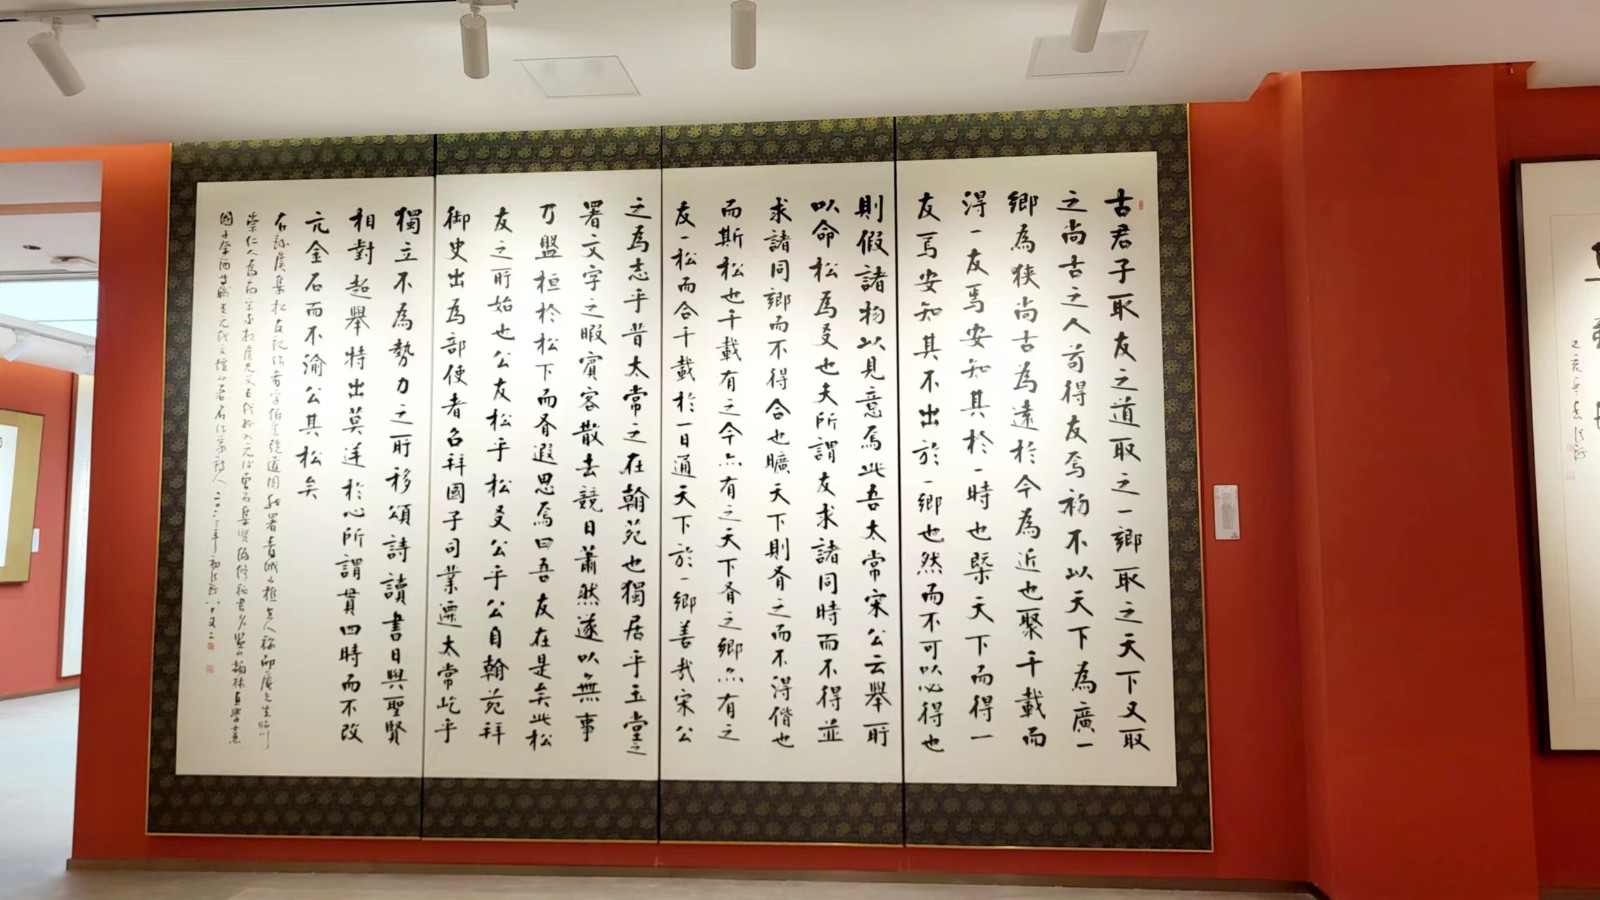 古君子取友之道取之一鄉取之天下又取
之尚古之人苟得友焉初不以天下為廣一
鄉為狹尚古為遠於今為近也聚千載而
得一友焉安知其於一時也槩天下而得一
友焉安知其不出於一鄉也然而不可以必得也
則假諸物以見意焉此吾太常宋公云舉所
以命松為友也夫所謂友求諸同時而不得並
求諸同鄉而不得合也曠天下則有之而不得偕也
而斯松也千載有之今亦有之天下有之鄉亦有之
友一松而合千載於一日通天下於一鄉善哉宋公
之為志乎昔太常之在翰苑也獨居乎玉堂之
署文字之暇賓客散去競日蕭然遂以無事
乃盤桓於松下而有遐思焉曰吾友在是矣此松
友之所始也公友松乎松友公乎公自翰苑拜
御史出為部使者召拜國子司業遷太常屹乎
獨立不為勢力之所移頌詩讀書日與聖賢
相對超舉特出莫逆於心所謂貫四時而不改
亢金石而不渝公其松矣
右錄虞集松友記作者字伯生號道園 先生臨川
崇仁人為南宋 翰林直學士兼
國子祭酒 元代 著名 詩人 二〇二三年